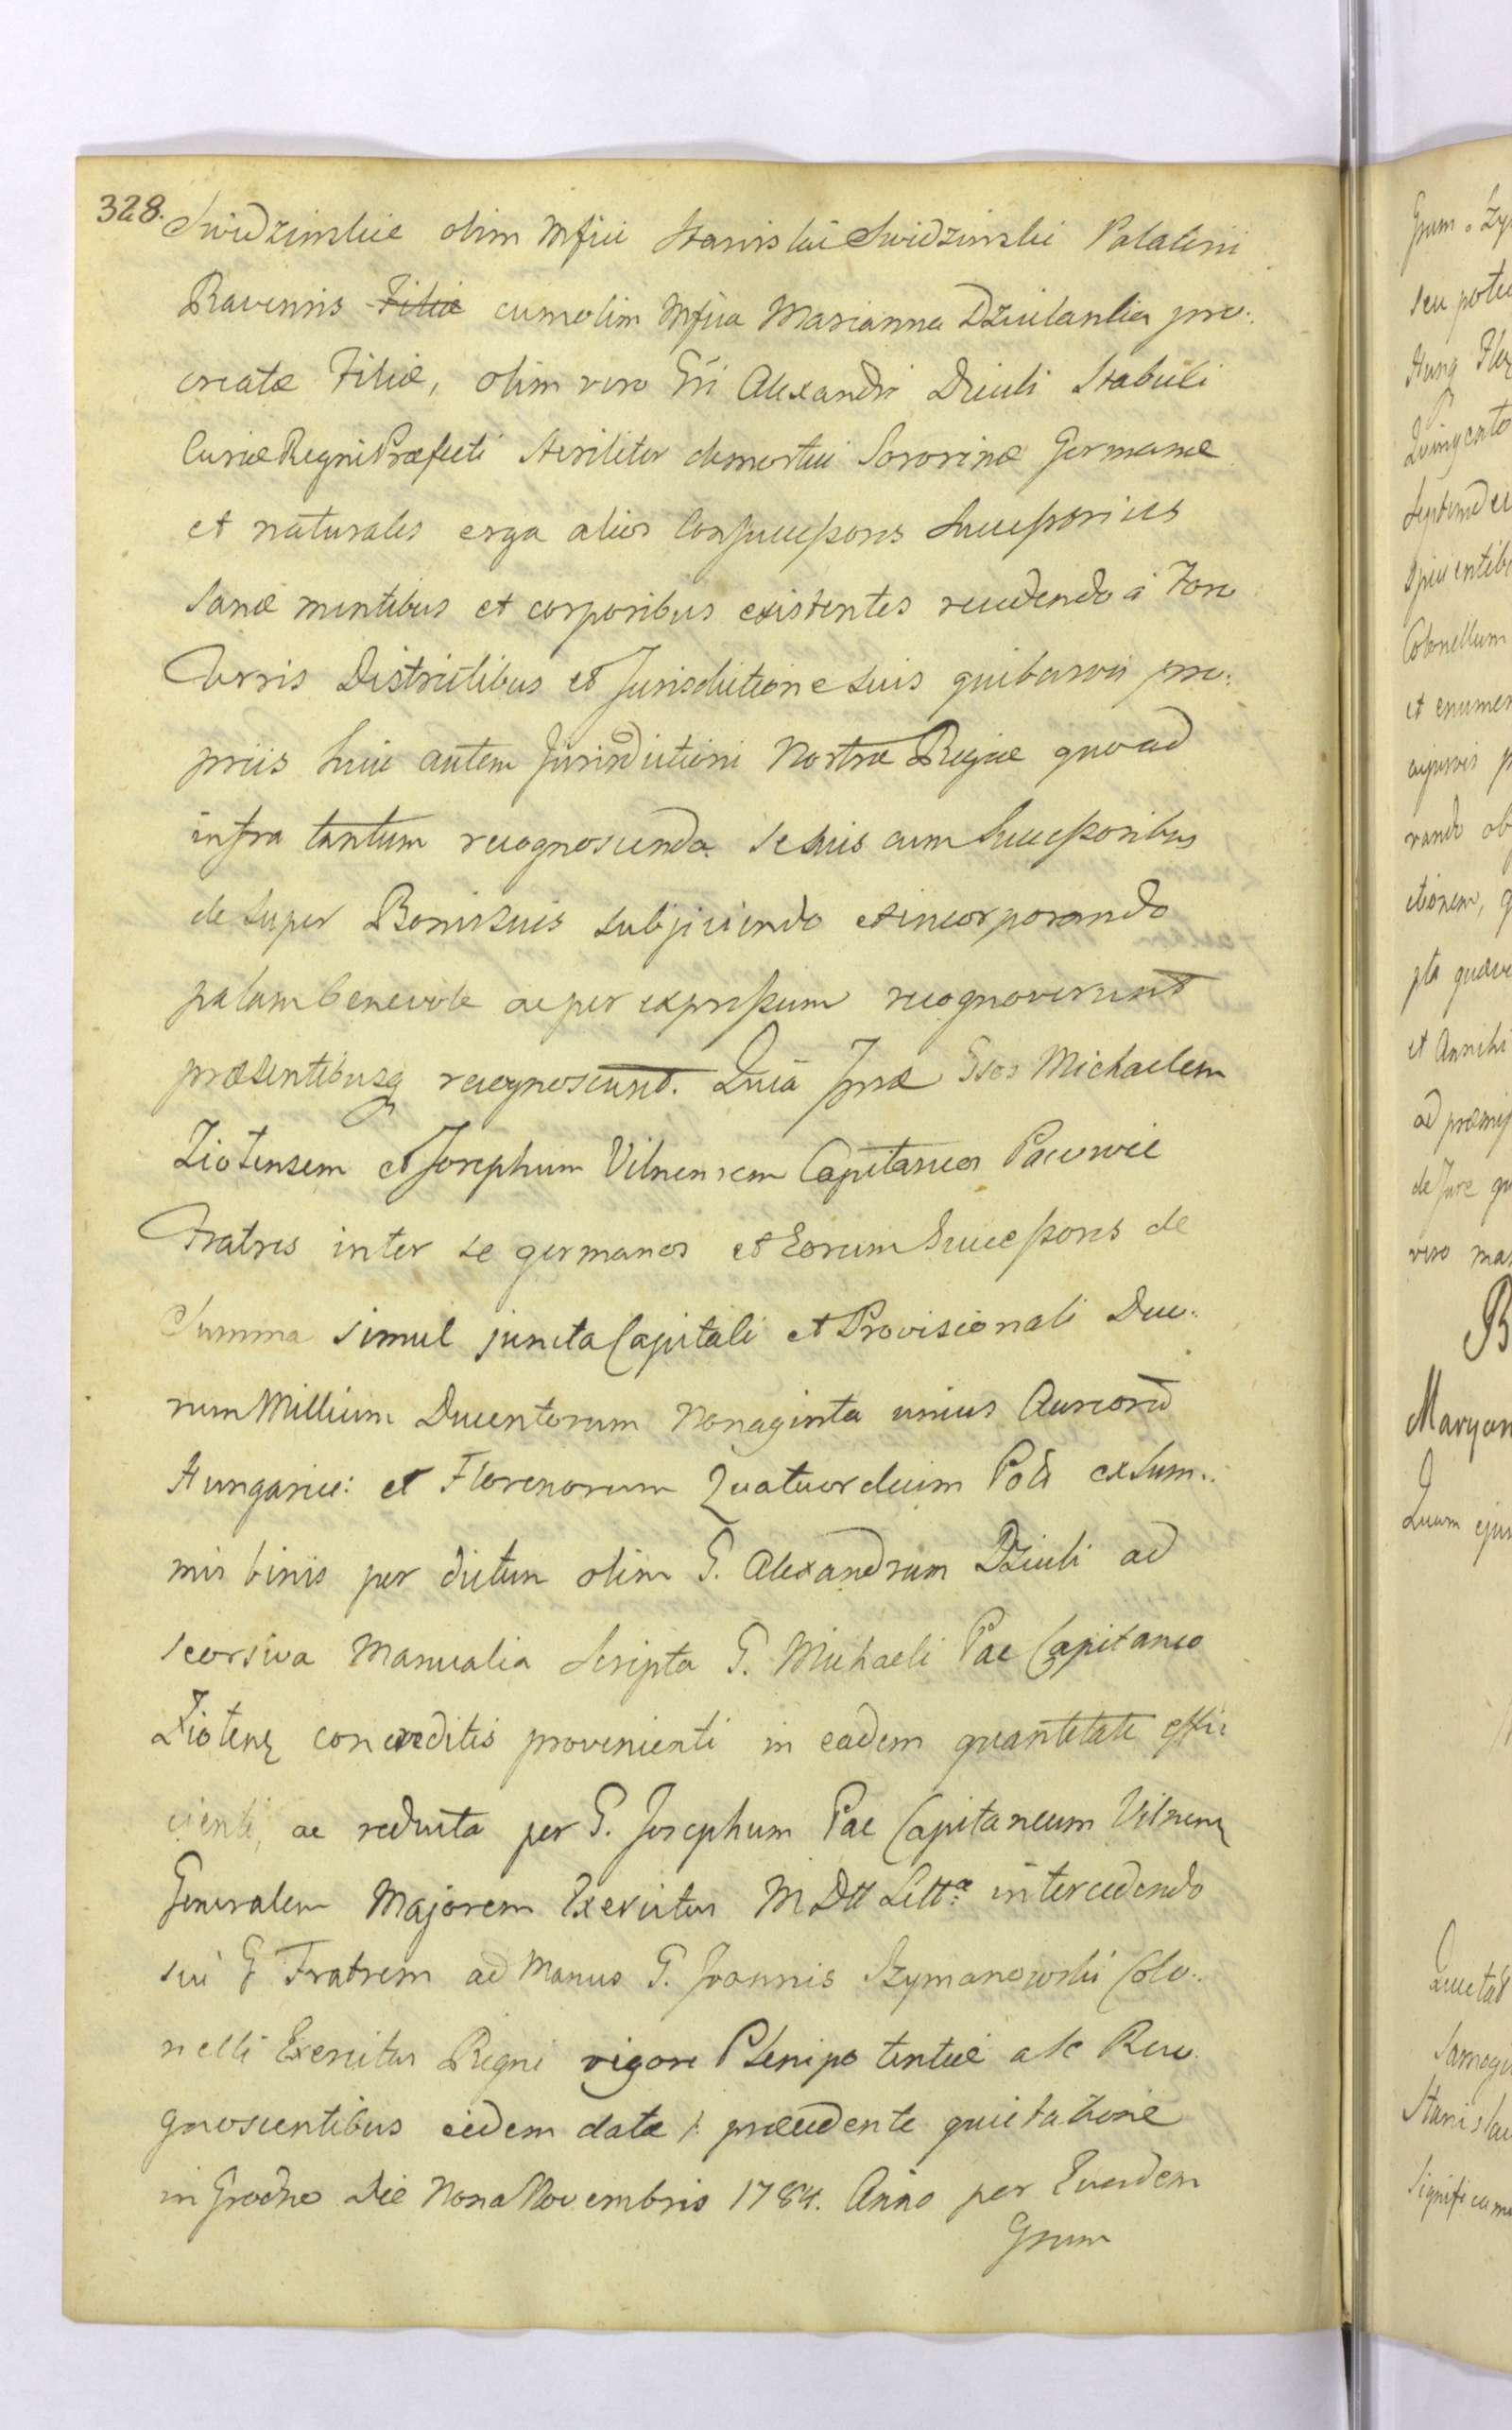 328.
Swidzinskie olim Mfici Stanislai Swidzinski Palatini
Ravennis Filiæ cum olim Mfica Marianna Dziulanka pro:
creatæ Filiæ, olim vero Gri Alexandri Dziuli Stabuli
Curiæ Regni Præfecti steriliter demortui Sororinæ Germanæ
et naturales erga alios Consuccessores Successorices
Sanæ mentibus et corporibus existentes recedendo á Foro
Terris Districtibus et Jurisdictione suis quibusvis pro:
priis huic autem Jurisdictioni Nostræ Regiæ quoad
infra tantum recognoscenda se suis cum Successoribus
de super Bonis suis subjiciendo et incorporando
palam benevole ac per expressum recognoverunt
præsentibusq recognoscunt. Quia Ipsæ Gsos Michaelem
Ziotensem et Josephum Vilnensem Capitaneos Pacowie
Fratres inter se germanos et Eorum Successores de
Summa simul juncta Capitali et Provisionali Duo:
rum Millium Ducentorum Nonaginta unius Aureorū
Hungaric: et Florenorum Quatuordecim Pol ex Sum:
mis binis per dictum olim G. Alexandrum Dziuli ad
seorsiva Manualia Scripta G. Michaeli Pac Capitaneo
Ziotens concreditis provenienti in eadem quantitate effi:
cienti, ac reducta per G. Josephum Pac Capitaneum Vilnens
Generalem Majorem Exercitus M D Litt: intercedendo
sui G Fratrem ad Manus G. Joannis Szymanowski Colo:
nelli Exercitus Regni vigore Plenipotentiæ a se Reco:
gnoscentibus eidem datæ /: præcedente quietatione
in Grodno Die Nona Novembris 1784. Anno per Eundem
Gsum
Gsum
seu
Hung
Quingento
Colonellum
et
ad
de Jure
vero
B
Quam